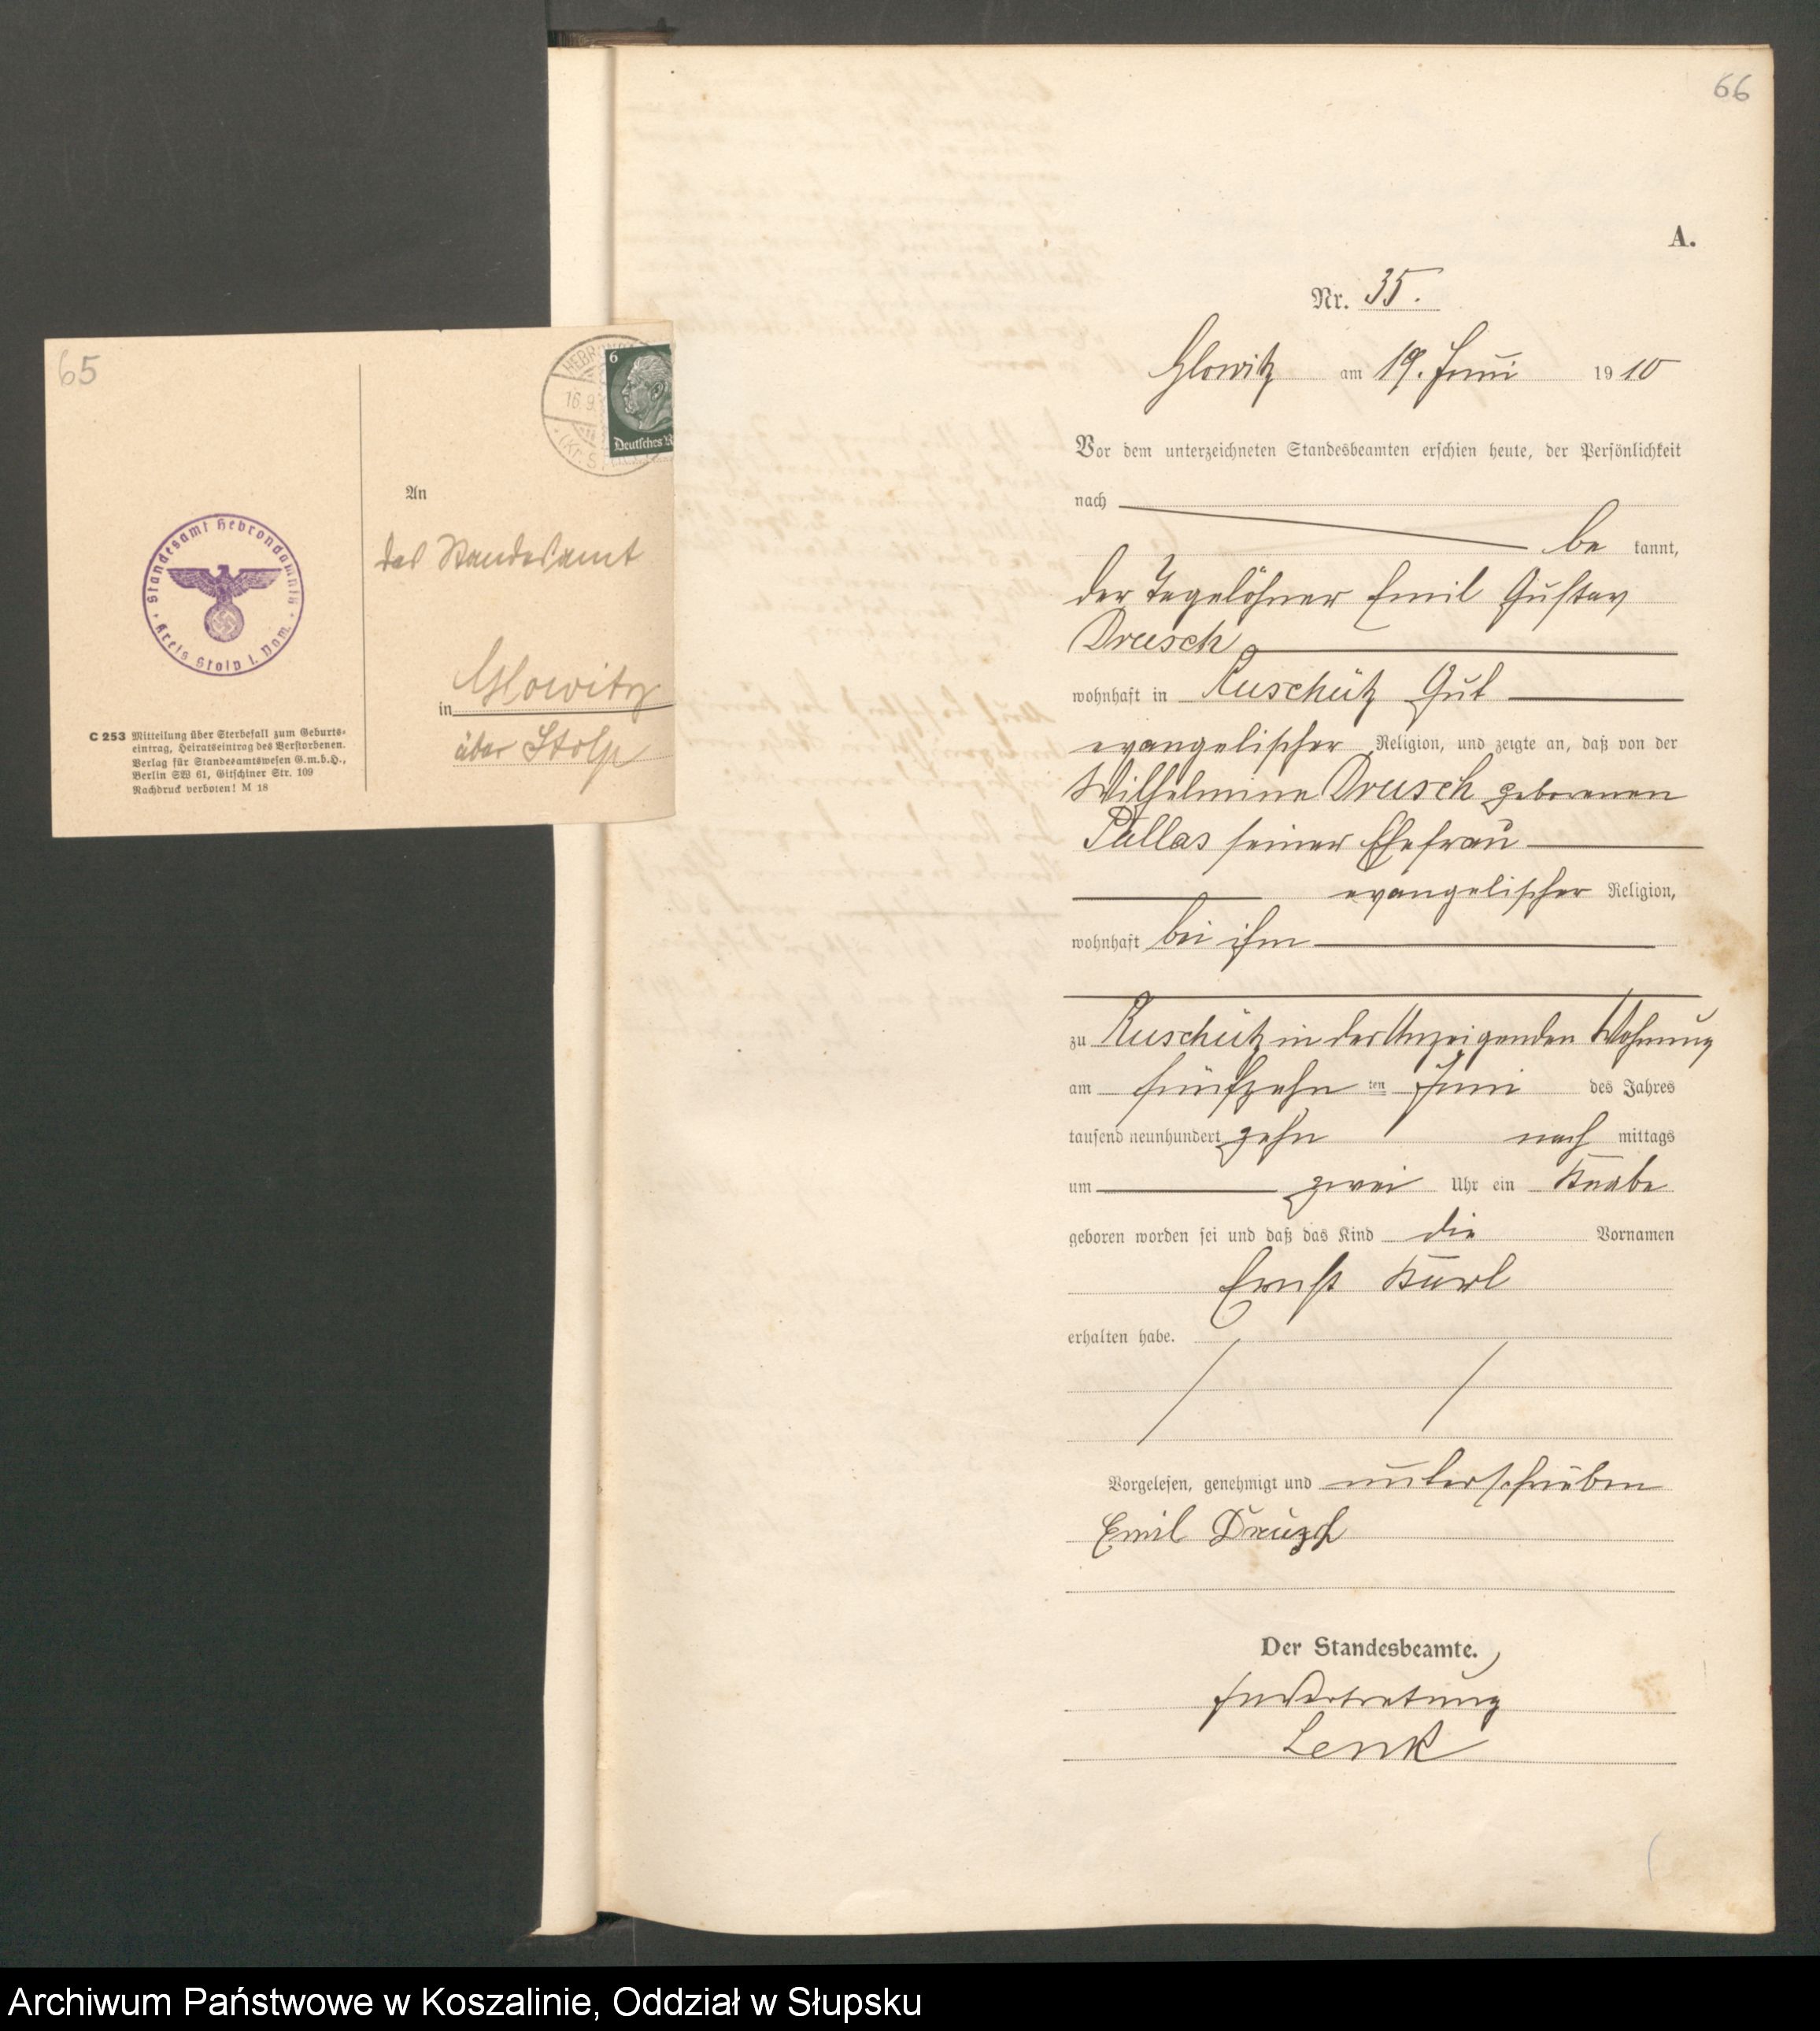 65
HEBRON
16.9.
(Kr. S
6
Deutsches R
An
das Standesamt
Standesamt Hebrondamnitz
Kreis Stolp i. Pom.
in Glowitz
über Stolp
C 253 Mitteilung über Sterbefall zum Geburts-
eintrag, Heiratseintrag des Verstorbenen.
Verlag für Standesamtswesen G.m.b.H.,
Berlin SW 61, Gitschiner Str. 109
Nachdruck verboten! M 18
66
A.
Nr. 35.
Glowitz am 19. Juni 1910
Vor dem unterzeichneten Standesbeamten erschien heute, der Persönlichkeit
nach
be kannt,
der Tagelöhner Emil Gustav
Drusch
wohnhaft in Ruschütz Gut
evangelischer Religion, und zeigte an, daß von der
Wilhelmine Drusch geborenen
Pallas seiner Ehefrau
evangelischer Religion,
wohnhaft bei ihm
zu Ruschütz in der Anzeigenden Wohnung
am fünfzehn ten Juni des Jahres
tausend neunhundert zehn nach mittags
um zwei Uhr ein Knabe
geboren worden sei und daß das Kind die Vornamen
Ernst Karl
erhalten habe.
Vorgelesen, genehmigt und unterschrieben
Emil Druzch
Der Standesbeamte.
In Vertretung
Lenk
Archiwum Państwowe w Koszalinie, Oddział w Słupsku